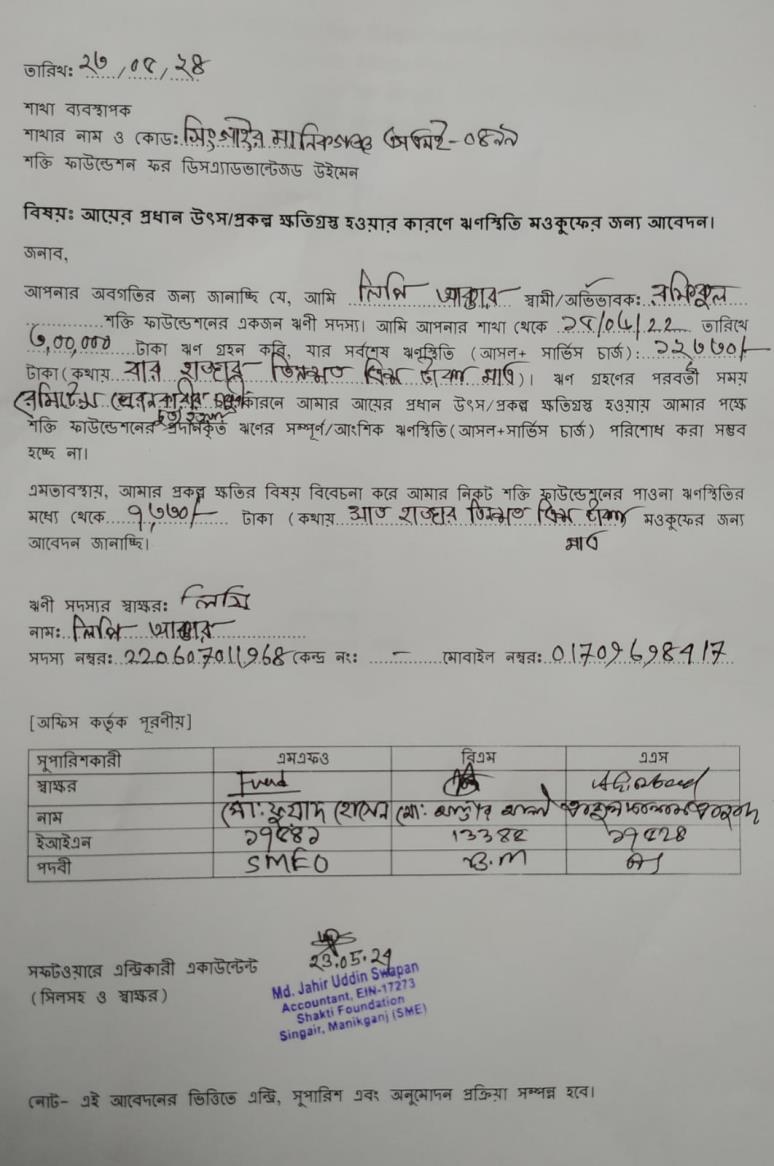 তারিখ: ২৩/০৫/২৪
শাখা ব্যবস্থাপক
শাখার নাম ও কোড: সিংগাইর মানিকগঞ্জ এসএমই-০৪৯৯
শক্তি ফাউন্ডেশন ফর ডিসএ্যাডভান্টেজড উইমেন
বিষয়: আয়ের প্রধান উৎস/প্রকল্প ক্ষতিগ্রস্থ হওয়ার কারণে ঋণস্থিতি মওকুফের জন্য আবেদন।
জনাব,
আপনার অবগতির জন্য জানাচ্ছি যে, আমি লিপি আক্তার স্বামী/অভিভাবক: রফিকুল
শক্তি ফাউন্ডেশনের একজন ঋনী সদস্য। আমি আপনার শাখা থেকে তারিখে
৩,00,000 টাকা ঋণ গ্রহন করি, যার সর্বশেষ ঋণস্থিতি (আসল+ সার্ভিস চার্জ): ১২৩৩০/-
টাকা(কথায় বার হাজার তিনশত ত্রিশ টাকা মাত্র)। ঋণ গ্রহণের পরবর্তী সময়
কারনে আমার আয়ের প্রধান উৎস/প্রকল্প ক্ষতিগ্রস্থ হওয়ায় আমার পক্ষে
শক্তি ফাউন্ডেশনের প্রদানকৃত ঋণের সম্পূর্ণ/আংশিক ঋণস্থিতি(আসল+সার্ভিস চার্জ) পরিশোধ করা সম্ভব
হচ্ছে না।
এমতাবস্থায়, আমার প্রকল্প ক্ষতির বিষয় বিবেচনা করে আমার নিকট শক্তি ফাউন্ডেশনের পাওনা ঋণস্থিতির
মধ্যে থেকে ৭,৩৩০/- টাকা (কথায় সাত হাজার তিনশত ত্রিশ টাকা মওকুফের জন্য
মাত্র
আবেদন জানাচ্ছি।
ঋনী সদস্যর স্বাক্ষর: লিপি
নাম: লিপি আক্তার
সদস্য নম্বর: কেন্দ্র নং: - মোবাইল নম্বর:
[অফিস কর্তৃক পূরনীয়]
সুপারিশকারী এমএফও বিএম এএস
স্বাক্ষর
নাম মো: ফুয়াদ হোসেন
ইআইএন ১৭৫৪১ ১৩৩৪৫ ১৭৫২৪
পদবী SMEO B.M
23.05.24
সফটওয়ারে এন্ট্রিকারী একাউন্টেন্ট
(সিলসহ ও স্বাক্ষর)
Md. Jahir Uddin Swapan
Accountant, EIN-17273
Shakti Foundation
Singair, Manikganj (SME)
নোট- এই আবেদনের ভিত্তিতে এন্ট্রি, সুপারিশ এবং অনুমোদন প্রক্রিয়া সম্পন্ন হবে।